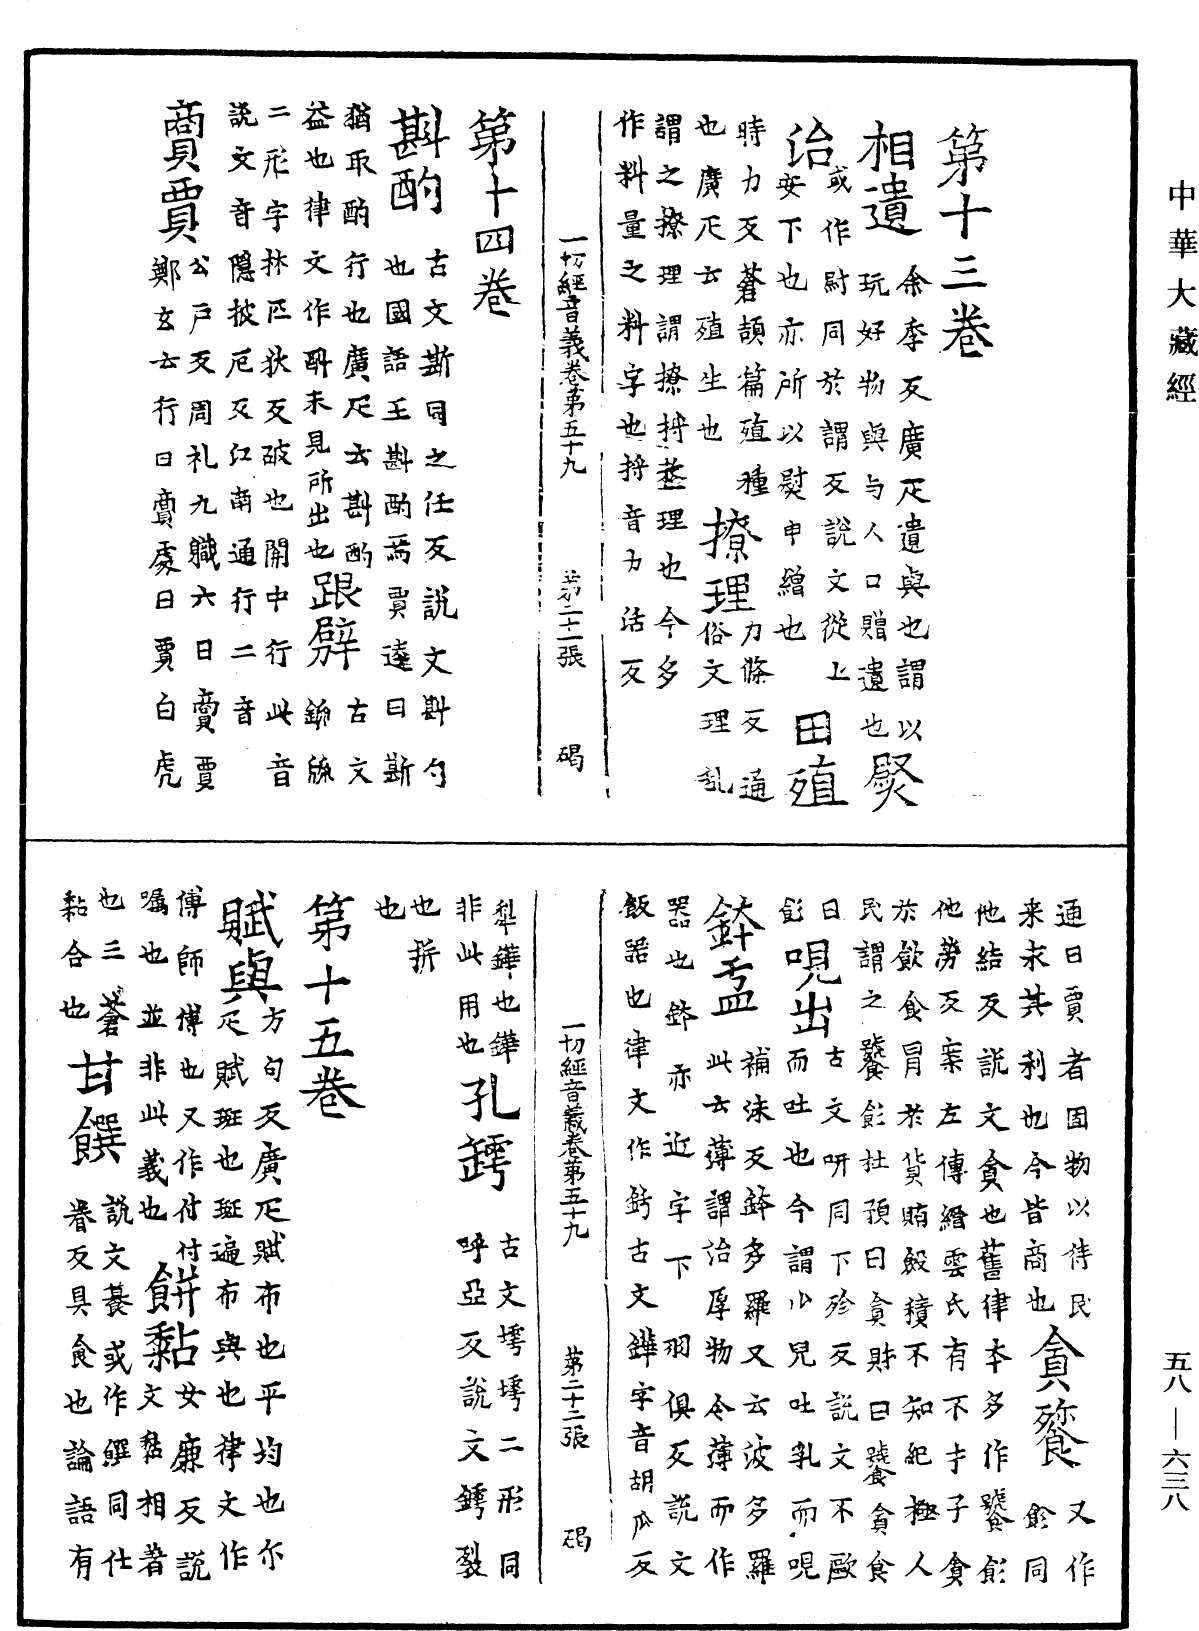 中華大藏經
第十三卷
相遺 余季反廣疋遺與也謂以
玩好物與与人口贈遺也 熨
或作尉同於謂反說文從上
治 安下也亦所以熨申繒也 田殖
時力反蒼頡篇殖種
也廣疋云殖生也 撩理 力條反通
俗文理亂
謂之撩理謂撩捋整理也今多
作料量之料字也捋音力活反
一切經音義卷第五十九 第二十一張 碣
第十四卷
斟酌 古文斯同之任反說文斟勺
也國語王斟酌焉賈逵曰斟
猶取酌行也廣疋云斟酌
益也律文作斟未見所出也 踉劈 古文
二形字林匹狄反破也關中行此音
說文音隱披厄反江南通行二音
賣賈 公戶反周礼九職六曰賣賈
鄭玄云行曰賣處曰賈白虎
通曰賈者固物以待民
来求其利也今皆商也 貪餮 又作
飻同
他結反說文貪也舊律本多作饕飻
他勞反案左傳縉雲氏有不才子貪
於飲食冒於貨賄㑹積不知紀極人
民謂之饕飻杜預曰貪財曰饕貪食
曰飻 哯出 古文呀同下殄反說文不歐
而吐也今謂小兒吐乳而哯
鉢盂 補沫反鉢多羅又云波多羅
此云薄謂治厚物令薄而作
器也鉢亦近字下羽俱反說文
飯器也律文作釪古文鏵字音胡瓜反
一切經音義卷第五十九 第二十二張 碣
犁鏵也鏵
非此用也 孔罅 古文㙤㙤二形同
呼亞反說文罅裂
也㭊
也
第十五卷
賦與 方句反廣疋賦布也平均也尔
疋賦班也班遍布與也律文作
傅師傅也又作付付
囑也並非此義也 餅黏 女廉反說
文黏相著
也三蒼
黏合也 甘饌 說文養或作䉵同仕
眷反具食也論語有
五八—六三八